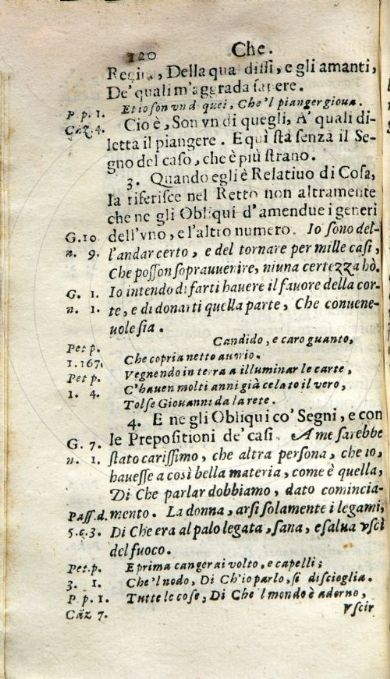 120 Che.
Regin, Della qua dissi, e gli amanti,
De' quali m'aggrada sapere.
P p. 1. Et io son vn d quei, Che'l pianger gioua.
Cãz. 4. Cio è, Son vn di quegli, A' quali di-
letta il piangere. E qui stà senza il Se-
gno del caso, che è più strano.
3. Quando egli è Relatiuo di Cosa,
la riferisce nel Retto non altramente
che ne gli Obliqui d'amendue i generi
G. 10 dell'vno, e l'altro numero. Io sono del-
n. 9. l'andar certo, e del tornare per mille casi,
Che posson soprauuenire, niuna certezza hò.
G. 1. Io intendo di farti hauere il fauore della cor-
n. 1. te, e di donarti quella parte, Che conuene-
uole sia.
Candido, e caro guanto,
Pet p. Che copria netto auorio.
1. 167. Vegnendo in terra a illuminar le carte,
Pet p. C'hauen molti anni già celato il vero,
1. 4. Tolse Giouanni da la rete.
4. E ne gli Obliqui co' Segni, e con
G. 7. le Prepositioni de' casi. A me sarebbe
n. 1. stato carissimo, che altra persona, che io,
hauesse a così bella materia, come è quella,
Di Che parlar dobbiamo, dato comincia-
Pass. d. mento. La donna, arsi solamente i legami,
5. c. 3. Di Che era al palo legata, sana, e salua vscì
del fuoco.
Pet. p. E prima cangerai volto, e capelli;
3. 1. Che'l nodo, Di Ch'io parlo, si discioglia.
P. p. 1. Tutte le cose, Di Che'l mondo è adorno,
Cãz 7. vscir